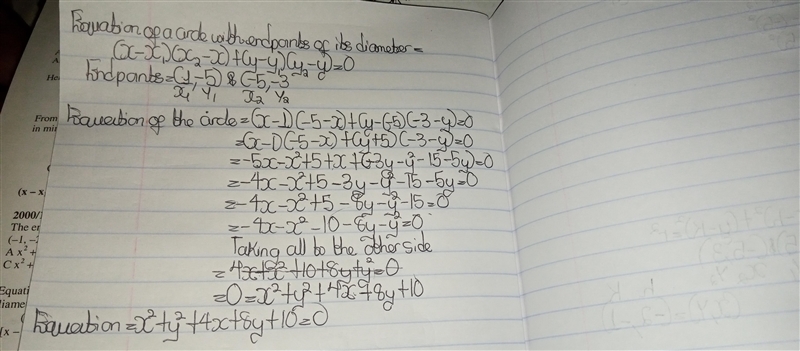 Equation of a circle with endpoints of its diameter =
(x-x₁)(x₂-x)+(y-y₁)(y₂-y)=0
Endpoints = (1, -5) & (-5, -3
x₁ y₁ x₂ y₂
Equation of the circle = (x-1)(-5-x)+(y-(-5)(-3-y)=0
= (x-1)(-5-x)+(y+5)(-3-y)=0
= -5x-x²+5+x+(-3y-y²-15-5y)=0
= -4x-x²+5-3y-y²-15-5y=0
= -4x-x²+5-8y-y²-15=0
= -4x-x²-10-8y-y²=0
Taking all to the other side
= 4x+x²+10+8y+y²=0
= 0=x²+y²+4x+8y+10
Equation = x²+y²+4x+8y+10=0
From
in mi
(x - x
2000/
The e
(-1, -
A x² +
C x² +
Equati
diame
(x -